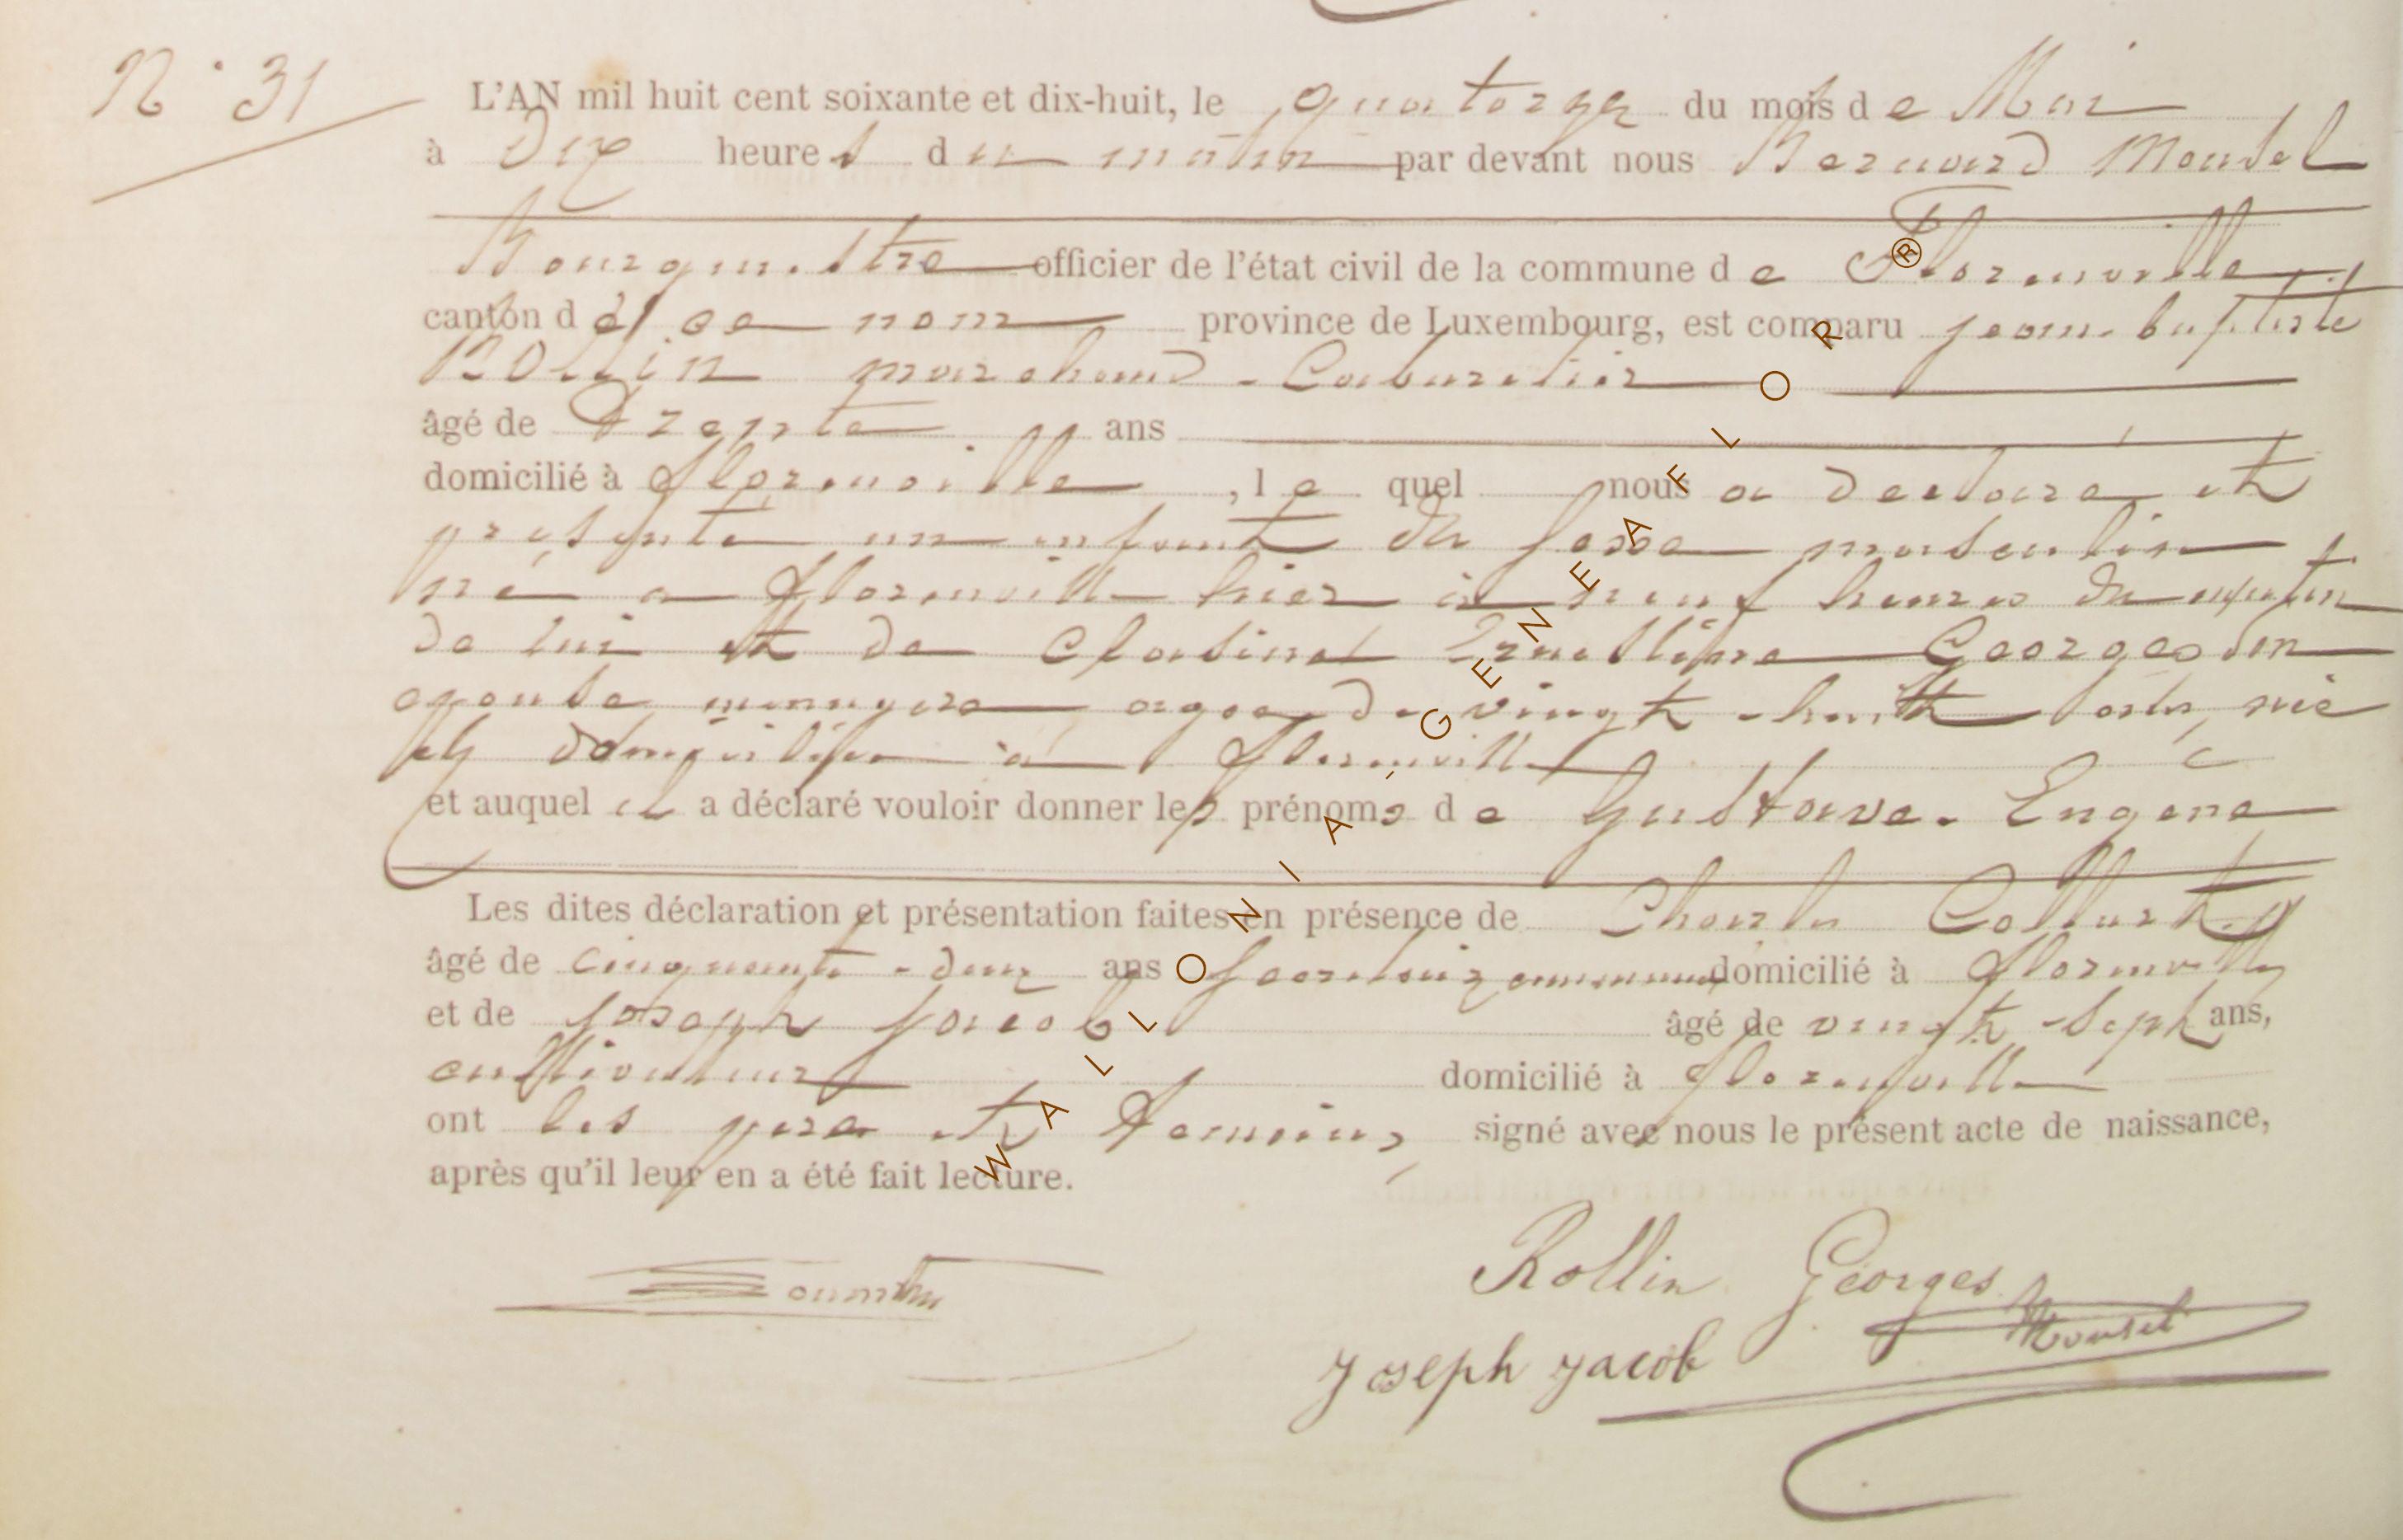 N° 31
L'AN mil huit cent soixante et dix-huit, le quatorze du mois de Mai
à Dix heures du matin par devant nous Bernard Mousel
Bourgmestre officier de l'état civil de la commune de Florenville
canton de ce nom province de Luxembourg, est comparu jean-baptiste
Rollin marchand-Cabaretier
âgé de Trente ans
domicilié à florenville, le quel nous a declaré et
presenté un enfant du sexe masculin
né a florenville hier à neuf heures du matin
de lui et de Georges son
epouse menagere agée de vingt-huit ans, née
et domiciliée à florenville
et auquel il a déclaré vouloir donner les prénoms de Gustave. Eugène
Les dites déclaration et présentation faites en présence de Charles
âgé de cinquante-deux ans domicilié à florenville
et de joseph jacob âgé de vingt-sept ans,
cultivateur domicilié à florenville
ont les père et Temoins, signé avec nous le présent acte de naissance,
après qu'il leur en a été fait lecture.
Rollin Georges
Mousel
Joseph Jacob
WALLONIA, GENEAFLOR®